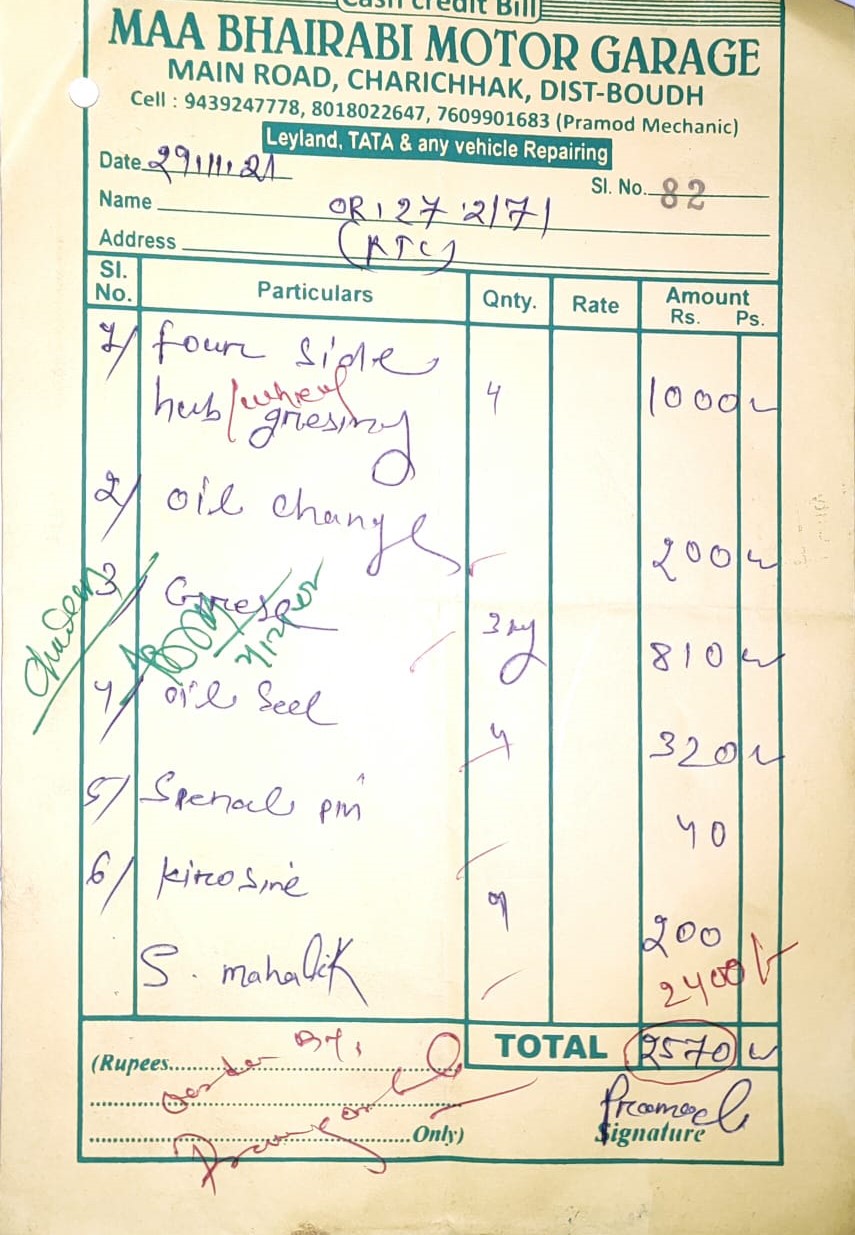 Cash Credit Bill
MAA BHAIRABI MOTOR GARAGE
MAIN ROAD, CHARICHHAK, DIST-BOUDH
Cell : 9439247778, 8018022647, 7609901683 (Pramod Mechanic)
Leyland, TATA & any vehicle Repairing
Date 29.11.21
Sl. No. 82
Name OR, 27 2171
Address (RTC)
Sl. No. Particulars Qnty. Rate Amount Rs. Ps.
1/ four side
hub/wheel gresing 4 1000
2/ oil change 200
3/ Grese 3 kg 810
4/ oil Seel 4 320
5/ Spenal pin 40
6/ kirosine 200
S. mahalik 2400
TOTAL 2570
(Rupees
Only)
Pramod
Signature